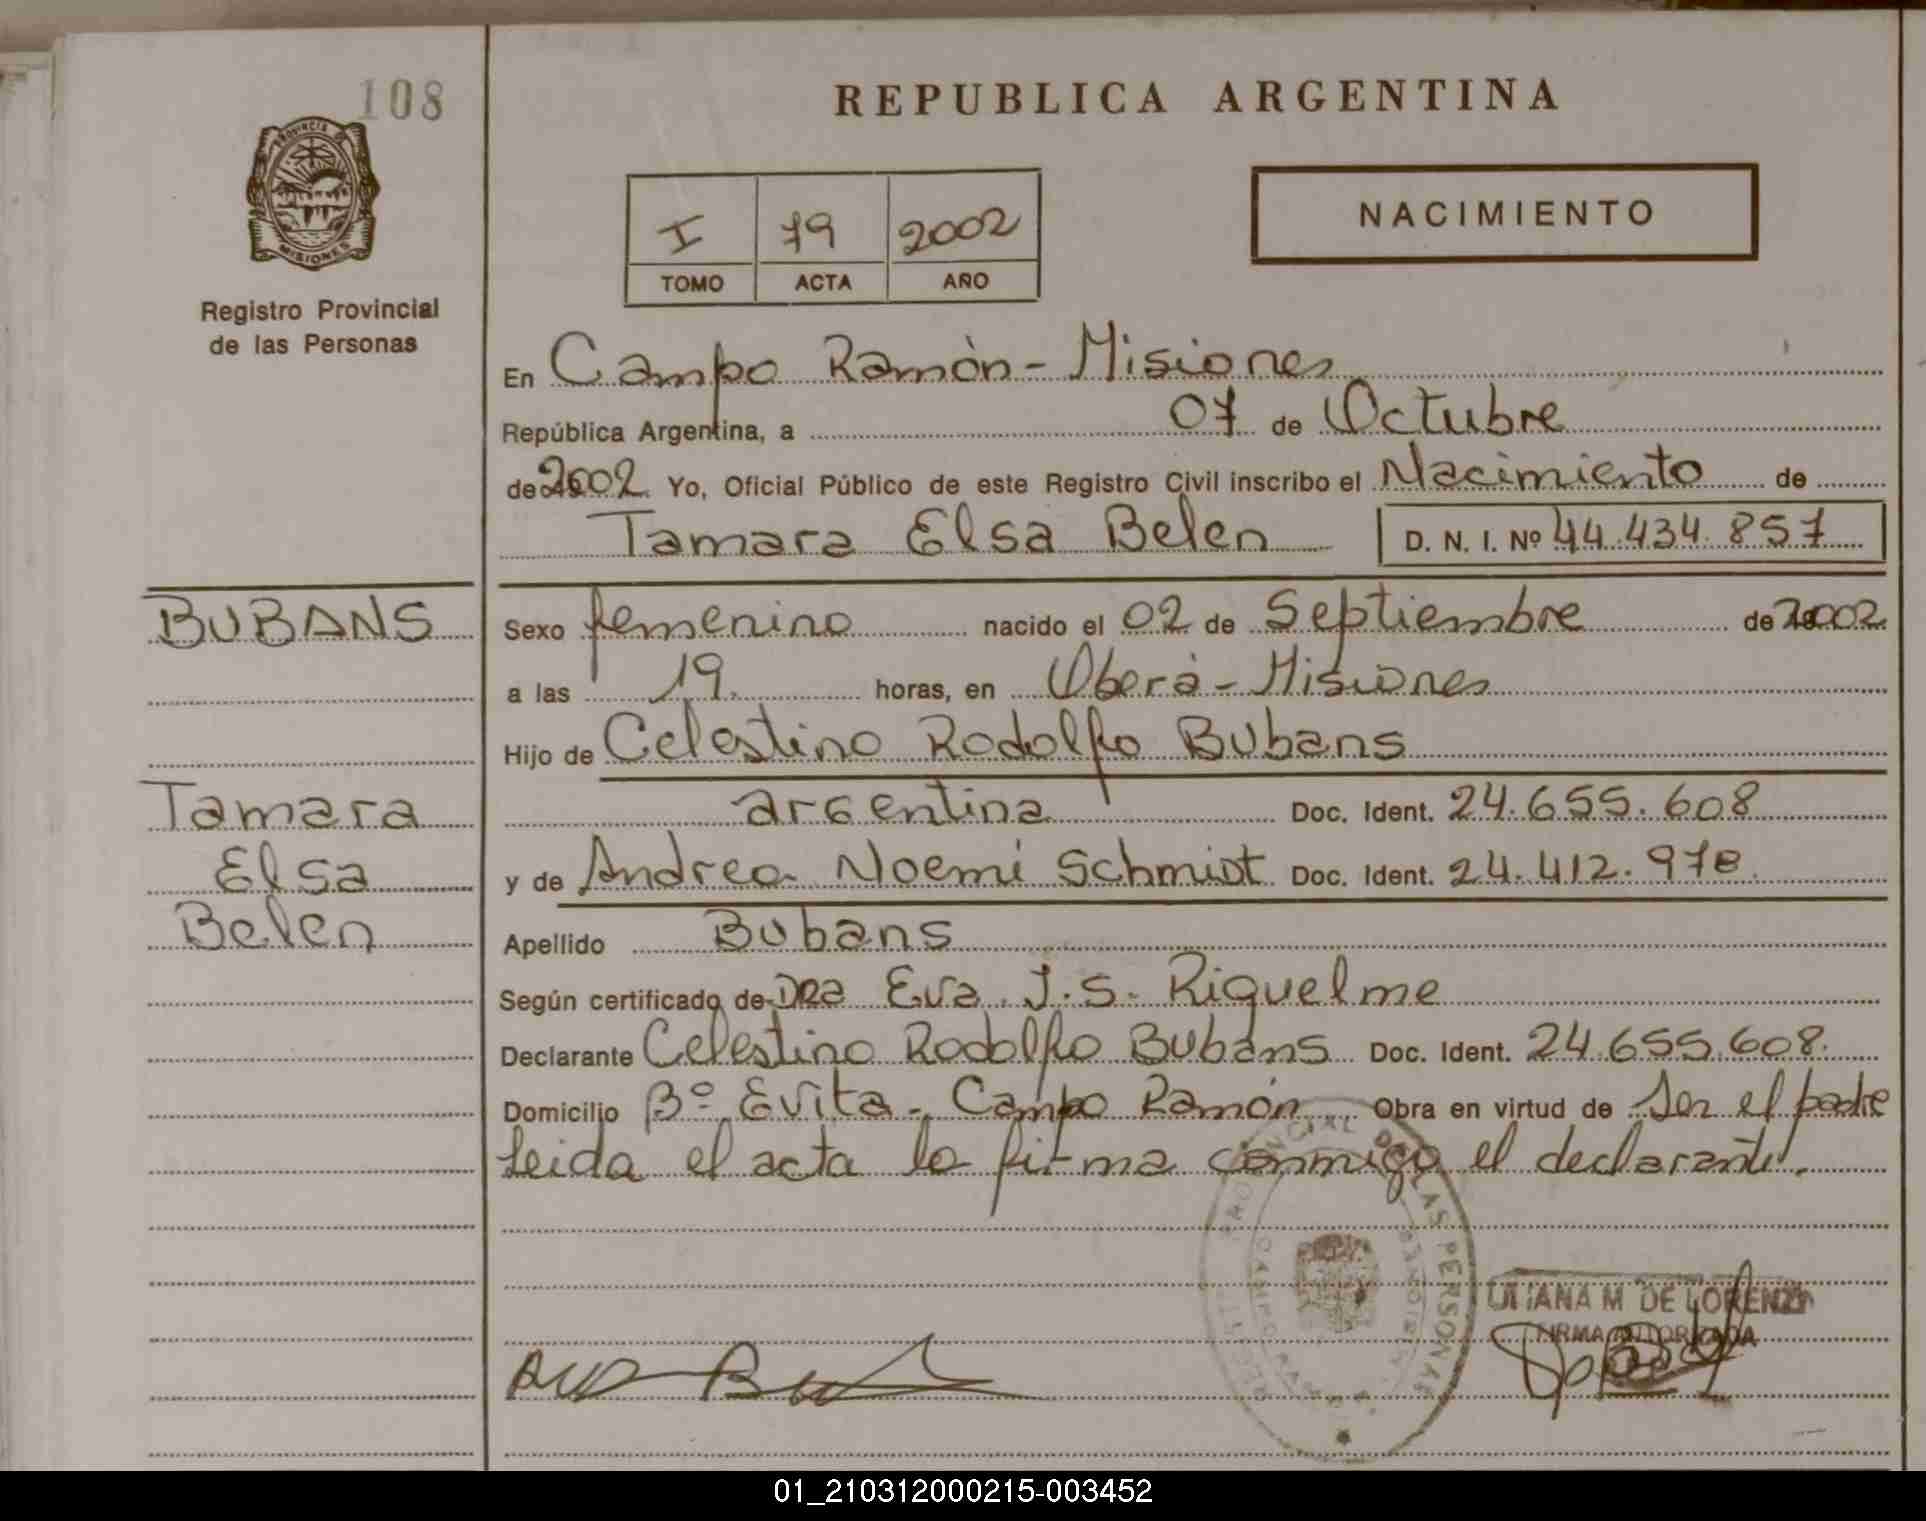 108
REPUBLICA ARGENTINA
PROVINCIA DE
MISIONES
Registro Provincial
de las Personas
I 79 2002
TOMO ACTA AÑO
NACIMIENTO
En Campo Ramón - Misiones
República Argentina, a 07 de Octubre
de 2002 Yo, Oficial Público de este Registro Civil inscribo el Nacimiento de
Tamara Elsa Belen D. N. I. Nº 44.434.857
BUBANS
Sexo femenino nacido el 02 de Septiembre de 2002
a las 19 horas, en Oberá - Misiones
Hijo de Celestino Rodolfo Bubans
Tamara
argentina Doc. Ident. 24.655.608
Elsa
y de Andrea Noemí Schmidt Doc. Ident. 24.412.978
Belen
Apellido Bubans
Según certificado de Dra Eva J.S. Riquelme
Declarante Celestino Rodolfo Bubans Doc. Ident. 24.655.608.
Domicilio Bº Evita - Campo Ramón Obra en virtud de Ser el padre
leida el acta la firma conmigo el declarante.
PROVINCIAL DE LAS PERSONAS
MISIONES
LILIANA M. DE LORENZI
FIRMA AUTORIZADA
01_210312000215-003452